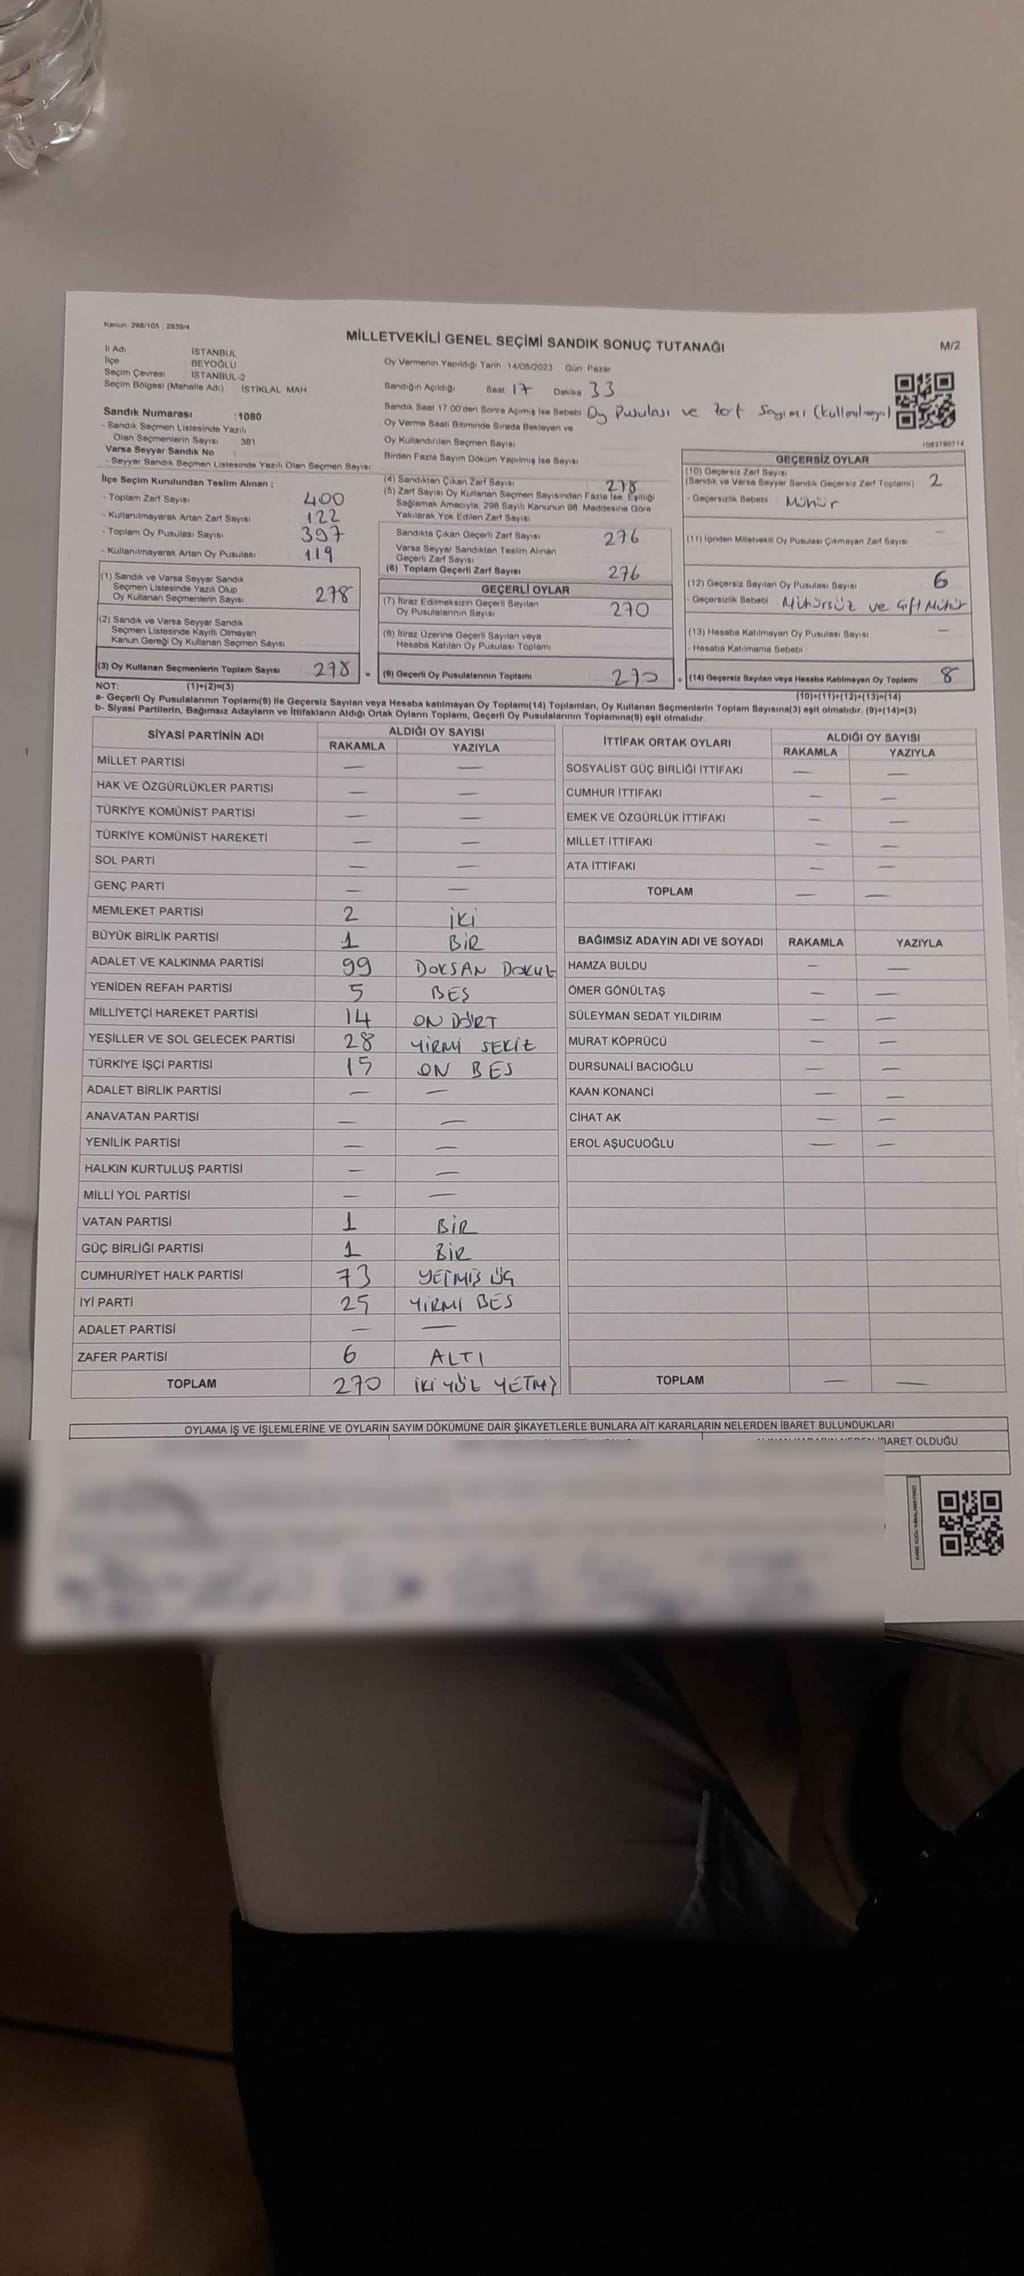 Kanun: 298/105 : 2839/4
MİLLETVEKİLİ GENEL SEÇİMİ SANDIK SONUÇ TUTANAĞI
M/2
İl Adı İSTANBUL
İlçe BEYOĞLU
Seçim Çevresi İSTANBUL-2
Seçim Bölgesi (Mahalle Adı) İSTİKLAL MAH.
Oy Vermenin Yapıldığı Tarih 14/05/2023 Gün: Pazar
Sandığın Açıldığı Saat 17 Dakika 33
Sandık Saat 17:00'den Sonra Açılmış İse Sebebi Oy Pusulası ve Zarf Sayımı
Oy Verme Saati Bitiminde Sırada Bekleyen ve
Oy Kullandırılan Seçmen Sayısı
Birden Fazla Sayım Döküm Yapılmış İse Sayısı
Sandık Numarası :1080
- Sandık Seçmen Listesinde Yazılı
Olan Seçmenlerin Sayısı 381
Varsa Seyyar Sandık No :
- Seyyar Sandık Seçmen Listesinde Yazılı Olan Seçmen Sayısı
İlçe Seçim Kurulundan Teslim Alınan ;
- Toplam Zarf Sayısı 400
- Kullanılmayarak Artan Zarf Sayısı 122
- Toplam Oy Pusulası Sayısı 397
- Kullanılmayarak Artan Oy Pusulası 119
(1) Sandık ve Varsa Seyyar Sandık
Seçmen Listesinde Yazılı Olup
Oy Kullanan Seçmenlerin Sayısı 278
(2) Sandık ve Varsa Seyyar Sandık
Seçmen Listesinde Kayıtlı Olmayan
Kanun Gereği Oy Kullanan Seçmen Sayısı
(3) Oy Kullanan Seçmenlerin Toplam Sayısı 278
(1)+(2)=(3)
(4) Sandıktan Çıkan Zarf Sayısı 278
(5) Zarf Sayısı Oy Kullanan Seçmen Sayısından Fazla İse, Eşitliği
Sağlamak Amacıyla, 298 Sayılı Kanunun 98. Maddesine Göre
Yakılarak Yok Edilen Zarf Sayısı
Sandıkta Çıkan Geçerli Zarf Sayısı 276
Varsa Seyyar Sandıktan Teslim Alınan
Geçerli Zarf Sayısı
(6) Toplam Geçerli Zarf Sayısı 276
GEÇERLİ OYLAR
(7) İtiraz Edilmeksizin Geçerli Sayılan
Oy Pusulalarının Sayısı 270
(8) İtiraz Üzerine Geçerli Sayılan veya
Hesaba Katılan Oy Pusulası Toplamı
= (9) Geçerli Oy Pusulalarının Toplamı 270
1083760714
GEÇERSİZ OYLAR
(10) Geçersiz Zarf Sayısı
(Sandık ve Varsa Seyyar Sandık Geçersiz Zarf Toplamı) 2
- Geçersizlik Sebebi Mühür
(11) İçinden Milletvekili Oy Pusulası Çıkmayan Zarf Sayısı —
(12) Geçersiz Sayılan Oy Pusulası Sayısı 6
- Geçersizlik Sebebi Mühürsüz ve Çift Mühür
(13) Hesaba Katılmayan Oy Pusulası Sayısı —
- Hesaba Katılmama Sebebi
+ (14) Geçersiz Sayılan veya Hesaba Katılmayan Oy Toplamı 8
(10)+(11)+(12)+(13)=(14)
NOT:
a- Geçerli Oy Pusulalarının Toplamı(9) ile Geçersiz Sayılan veya Hesaba katılmayan Oy Toplamı(14) Toplamları, Oy Kullanan Seçmenlerin Toplam Sayısına(3) eşit olmalıdır. (9)+(14)=(3)
b- Siyasi Partilerin, Bağımsız Adayların ve İttifakların Aldığı Ortak Oyların Toplamı, Geçerli Oy Pusulalarının Toplamına(9) eşit olmalıdır.
SİYASİ PARTİNİN ADI ALDIĞI OY SAYISI
RAKAMLA YAZIYLA
MİLLET PARTİSİ — —
HAK VE ÖZGÜRLÜKLER PARTİSİ — —
TÜRKİYE KOMÜNİST PARTİSİ — —
TÜRKİYE KOMÜNİST HAREKETİ — —
SOL PARTİ — —
GENÇ PARTİ — —
MEMLEKET PARTİSİ 2 İKİ
BÜYÜK BİRLİK PARTİSİ 1 BİR
ADALET VE KALKINMA PARTİSİ 99 DOKSAN DOKUZ
YENİDEN REFAH PARTİSİ 5 BEŞ
MİLLİYETÇİ HAREKET PARTİSİ 14 ON DÖRT
YEŞİLLER VE SOL GELECEK PARTİSİ 28 YİRMİ SEKİZ
TÜRKİYE İŞÇİ PARTİSİ 15 ON BEŞ
ADALET BİRLİK PARTİSİ — —
ANAVATAN PARTİSİ — —
YENİLİK PARTİSİ — —
HALKIN KURTULUŞ PARTİSİ — —
MİLLİ YOL PARTİSİ — —
VATAN PARTİSİ 1 BİR
GÜÇ BİRLİĞİ PARTİSİ 1 BİR
CUMHURİYET HALK PARTİSİ 73 YETMİŞ ÜÇ
İYİ PARTİ 25 YİRMİ BEŞ
ADALET PARTİSİ — —
ZAFER PARTİSİ 6 ALTI
TOPLAM 270 İKİ YÜZ YETMİŞ
İTTİFAK ORTAK OYLARI ALDIĞI OY SAYISI
RAKAMLA YAZIYLA
SOSYALİST GÜÇ BİRLİĞİ İTTİFAKI — —
CUMHUR İTTİFAKI — —
EMEK VE ÖZGÜRLÜK İTTİFAKI — —
MİLLET İTTİFAKI — —
ATA İTTİFAKI — —
TOPLAM — —
BAĞIMSIZ ADAYIN ADI VE SOYADI RAKAMLA YAZIYLA
HAMZA BULDU — —
ÖMER GÖNÜLTAŞ — —
SÜLEYMAN SEDAT YILDIRIM — —
MURAT KÖPRÜCÜ — —
DURSUNALİ BACIOĞLU — —
KAAN KONANCİ — —
CİHAT AK — —
EROL AŞUCUOĞLU — —
TOPLAM — —
OYLAMA İŞ VE İŞLEMLERİNE VE OYLARIN SAYIM DÖKÜMÜNE DAİR ŞİKAYETLERLE BUNLARA AİT KARARLARIN NELERDEN İBARET BULUNDUKLARI
İBARET OLDUĞU